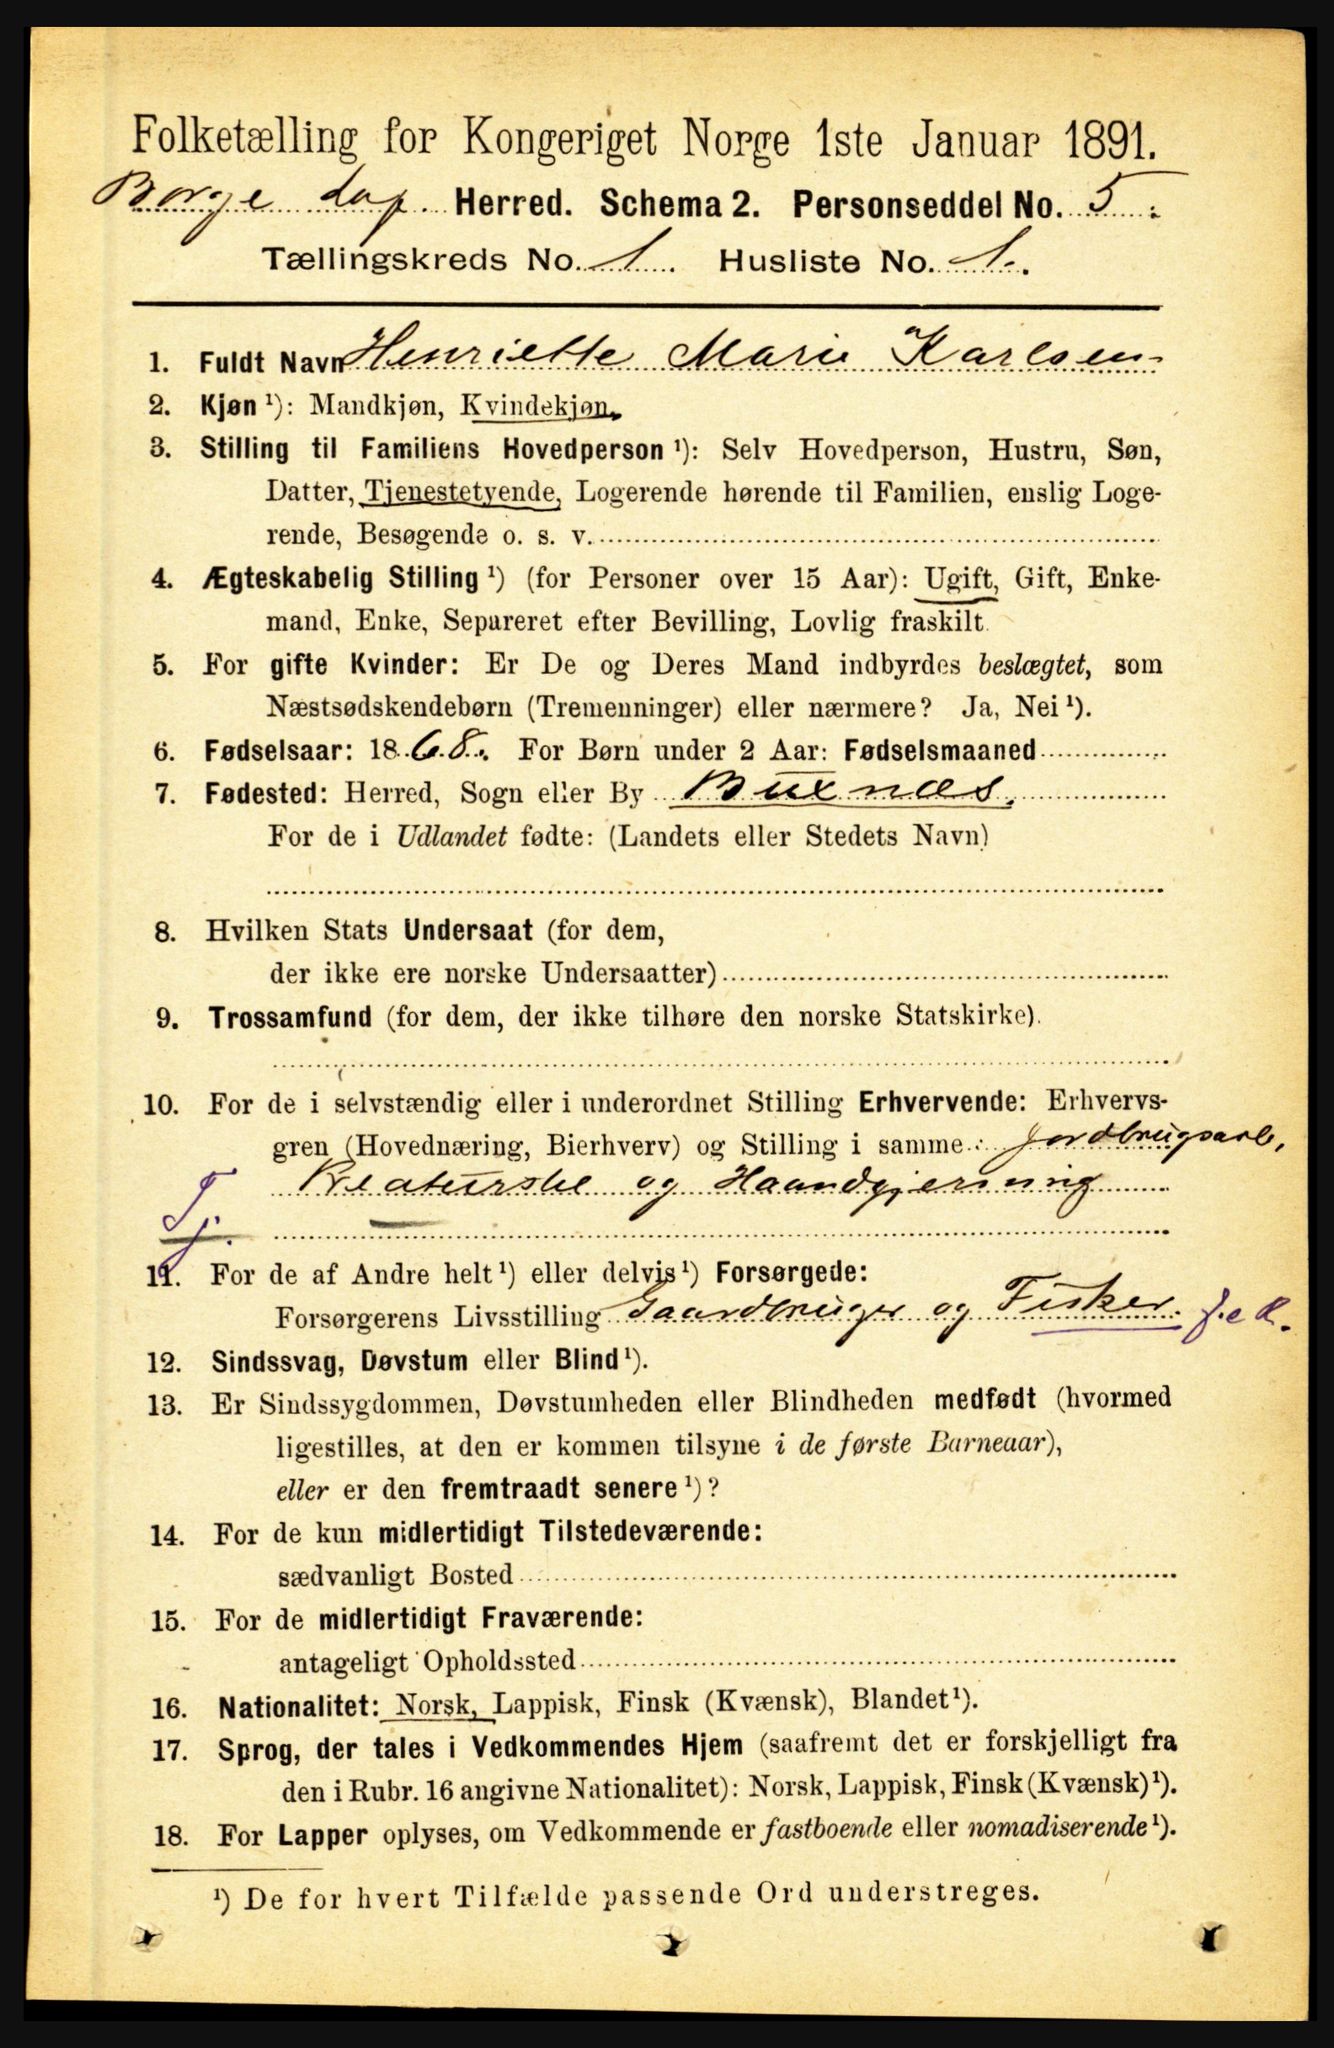 Folketælling for Kongeriget Norge 1ste Januar 1891.
Borge Herred. Schema 2. Personseddel No. 5.
Tællingskreds No. 1. Husliste No. 1.
1. Fuldt Navn Henriette Marie Karlsen
2. Kjøn ¹): Mandkjøn, Kvindekjøn.
3. Stilling til Familiens Hovedperson ¹): Selv Hovedperson, Hustru, Søn,
Datter, Tjenestetyende, Logerende hørende til Familien, enslig Loge-
rende, Besøgende o. s. v.
4. Ægteskabelig Stilling ¹) (for Personer over 15 Aar): Ugift, Gift, Enke-
mand, Enke, Separeret efter Bevilling, Lovlig fraskilt.
5. For gifte Kvinder: Er De og Deres Mand indbyrdes beslægtet, som
Næstsødskendebørn (Tremenninger) eller nærmere? Ja, Nei ¹).
6. Fødselsaar: 1868. For Børn under 2 Aar: Fødselsmaaned
7. Fødested: Herred, Sogn eller By Buxnæs.
For de i Udlandet fødte: (Landets eller Stedets Navn)
8. Hvilken Stats Undersaat (for dem,
der ikke ere norske Undersaatter)
9. Trossamfund (for dem, der ikke tilhøre den norske Statskirke).
10. For de i selvstændig eller i underordnet Stilling Erhvervende: Erhvervs-
gren (Hovednæring, Bierhverv) og Stilling i samme: Jordbrugsarb,
Kreaturstel og Haandgjerning
Tj.
11. For de af Andre helt ¹) eller delvis ¹) Forsørgede:
Forsørgerens Livsstilling Gaardbruger og Fisker.
12. Sindssvag, Døvstum eller Blind ¹).
13. Er Sindssygdommen, Døvstumheden eller Blindheden medfødt (hvormed
ligestilles, at den er kommen tilsyne i de første Barneaar),
eller er den fremtraadt senere ¹)?
14. For de kun midlertidigt Tilstedeværende:
sædvanligt Bosted
15. For de midlertidigt Fraværende:
antageligt Opholdssted
16. Nationalitet: Norsk, Lappisk, Finsk (Kvænsk), Blandet ¹).
17. Sprog, der tales i Vedkommendes Hjem (saafremt det er forskjelligt fra
den i Rubr. 16 angivne Nationalitet): Norsk, Lappisk, Finsk (Kvænsk) ¹).
18. For Lapper oplyses, om Vedkommende er fastboende eller nomadiserende ¹).
¹) De for hvert Tilfælde passende Ord understreges.